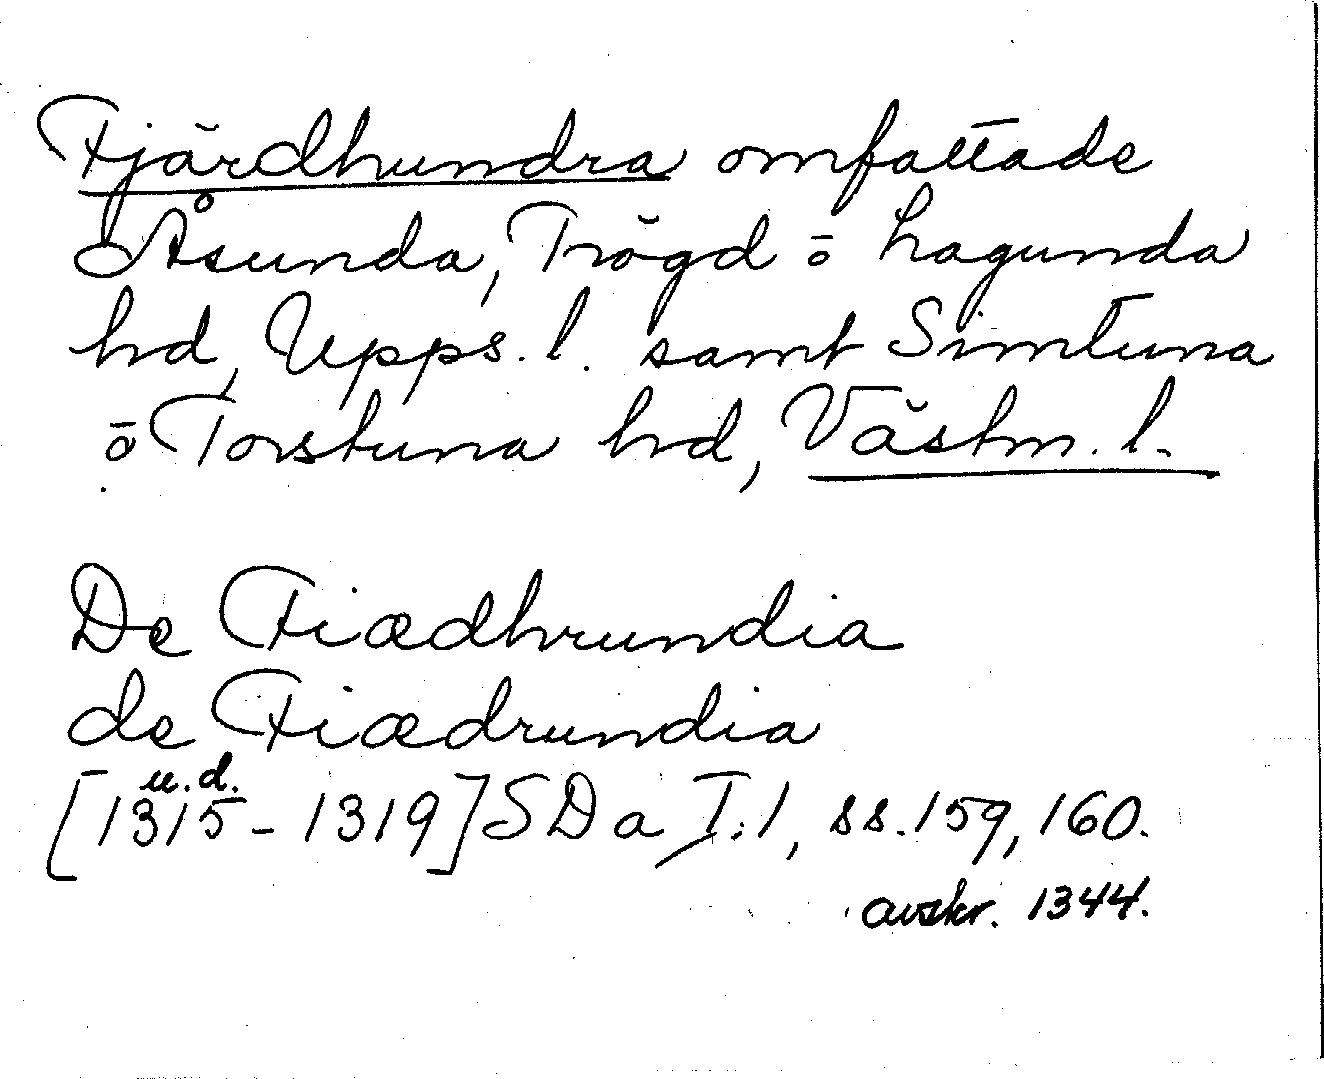 Fjärdhundra omfattade
Åsunda, Trögd ō Lagunda
hd, Upps. l. samt Simtuna
ō Torstuna hd, Västm. l.
De Fiædhrundia
de Fiædrundia
u.d.
[1315 - 1319] SD a I:1, ss. 159, 160.
avskr. 1344.